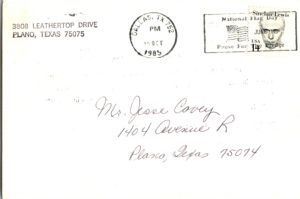 3808 LEATHERTOP DRIVE
PLANO, TEXAS 75075
DALLAS, TX 752
PM
15 OCT
1985
National Flag Day
Sinclair Lewis
USA
14
Mr. Jesse Cavey
1404 Avenue R
Plano, Texas 75074